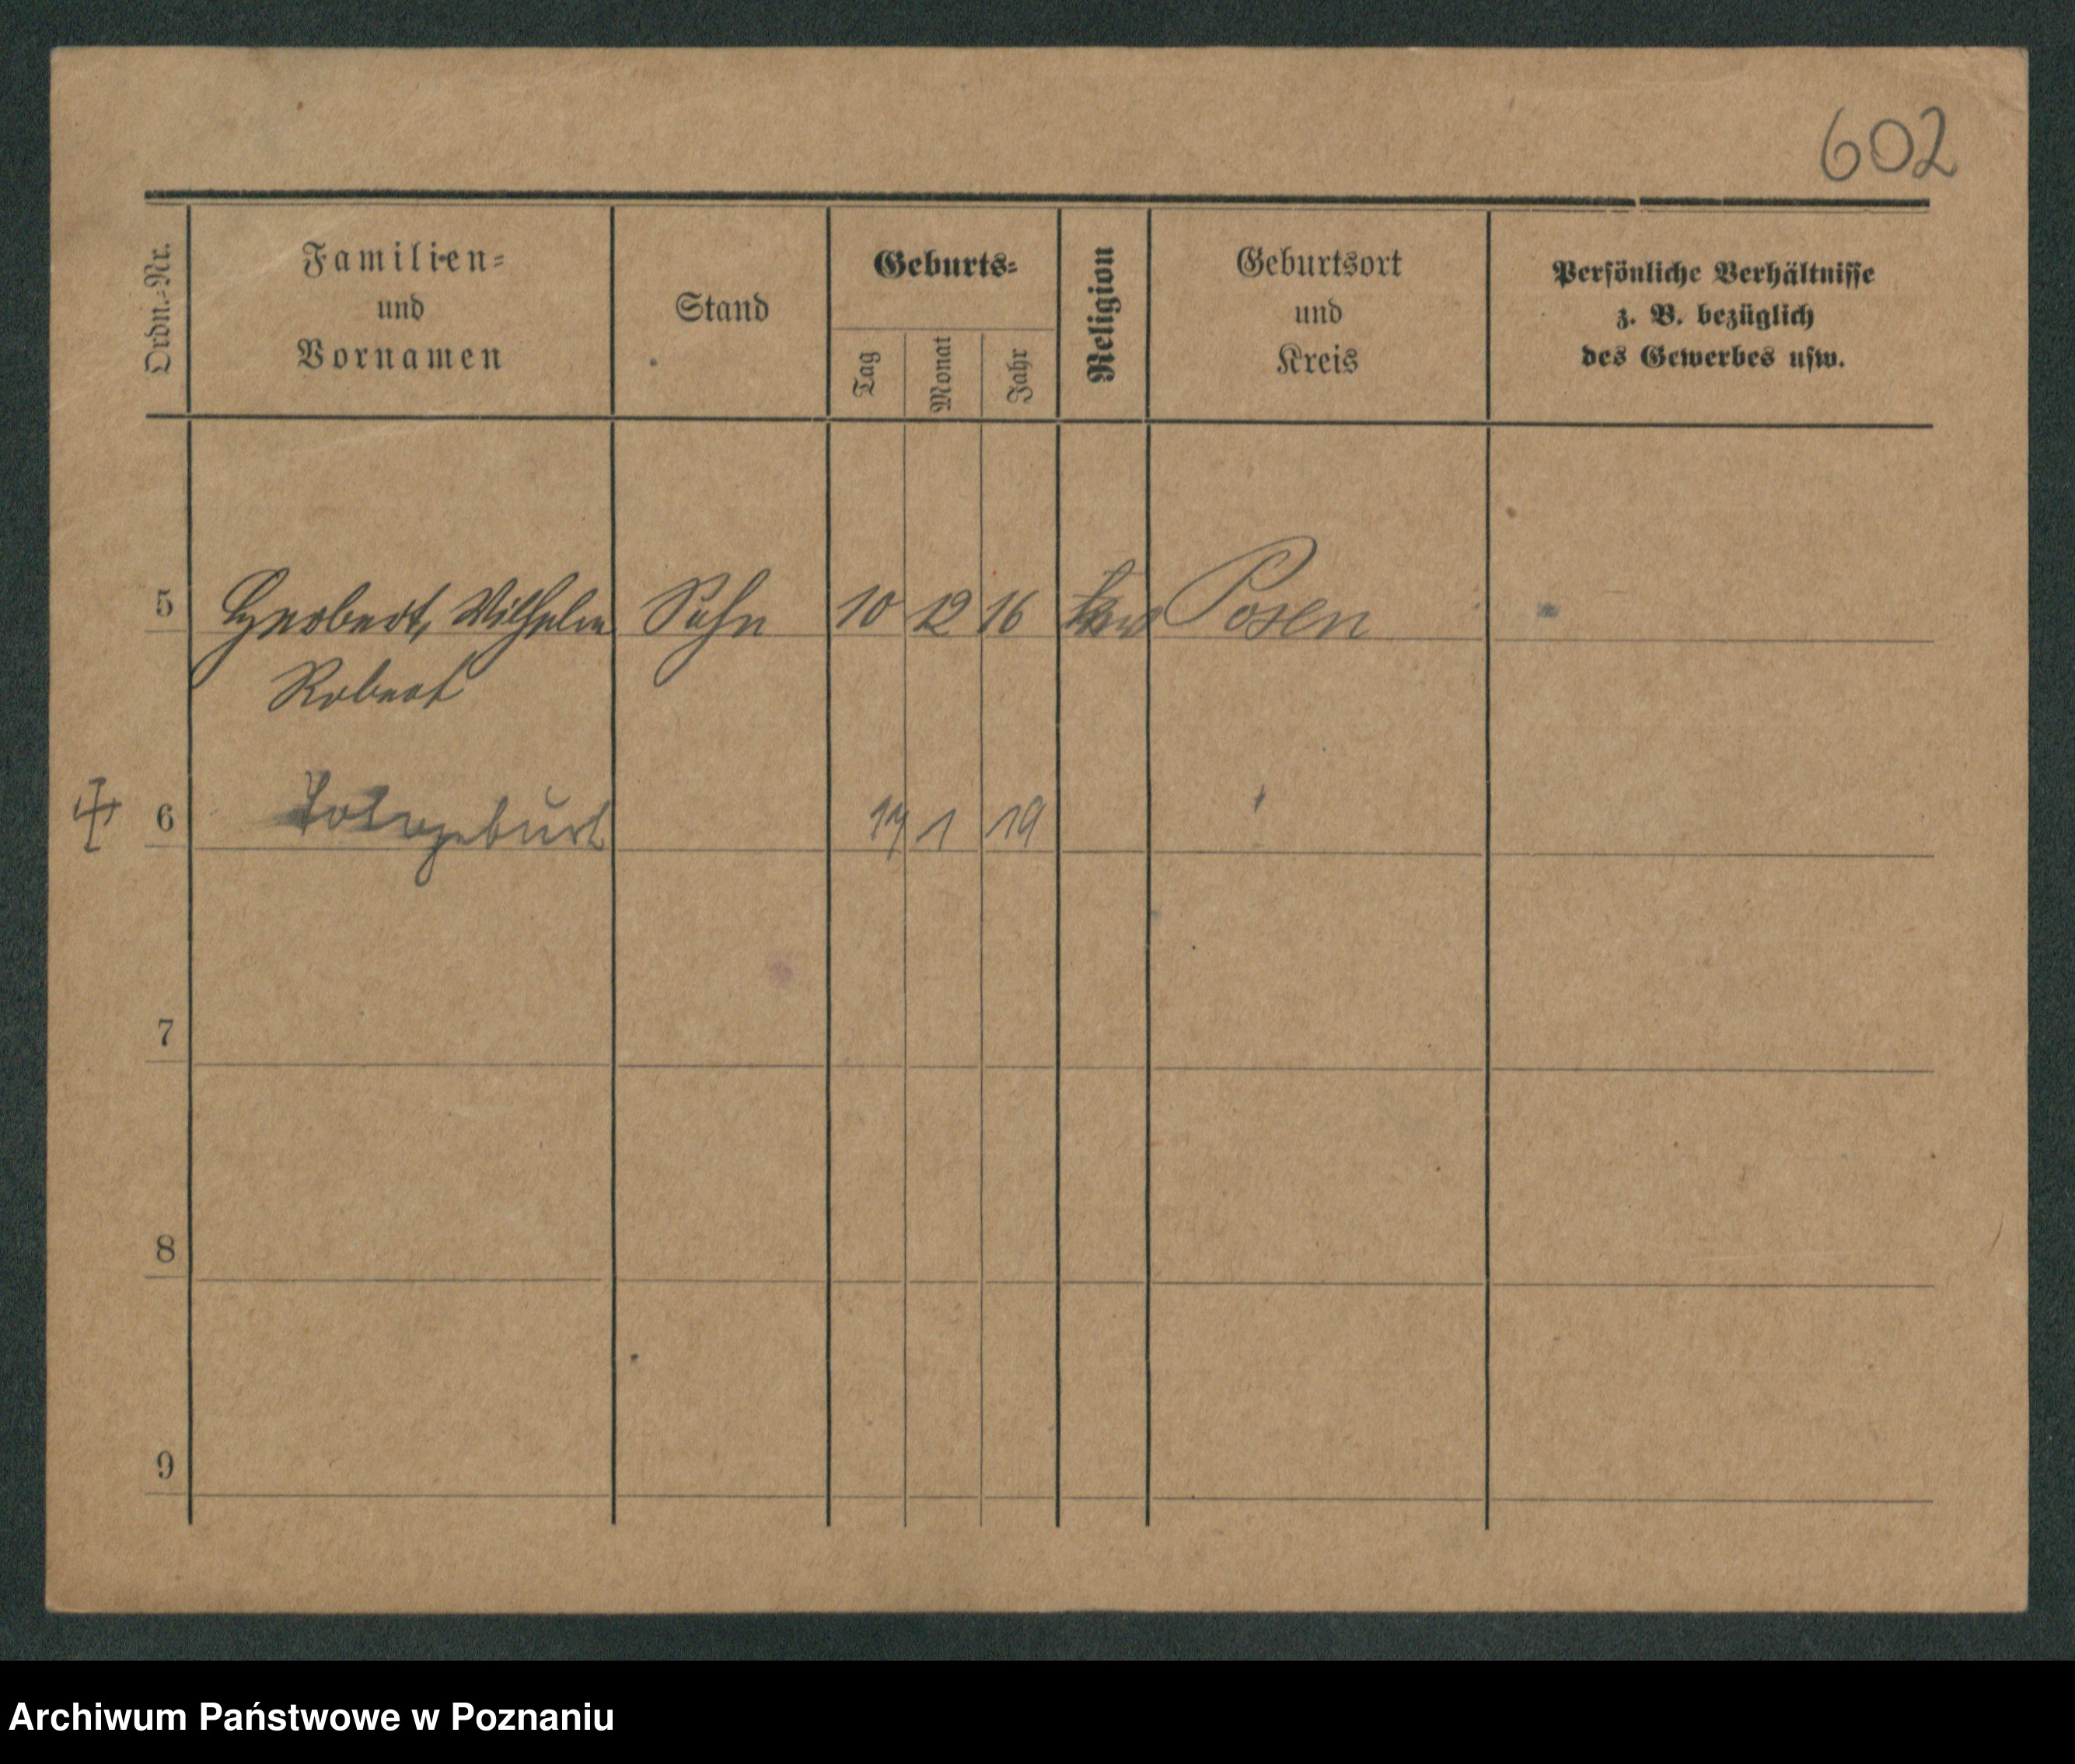 602
Ordn.-Nr.
Familien-
und
Vornamen
Stand
Geburts-
Tag
Monat
Jahr
Religion
Geburtsort
und
Kreis
Persönliche Verhältnisse
z. B. bezüglich
des Gewerbes usw.
5 Herbert, Wilhelm Sohn 10 12 16 Posen
Robert
6 Totgeburt 17 1 19
7
8
9
Archiwum Państwowe w Poznaniu